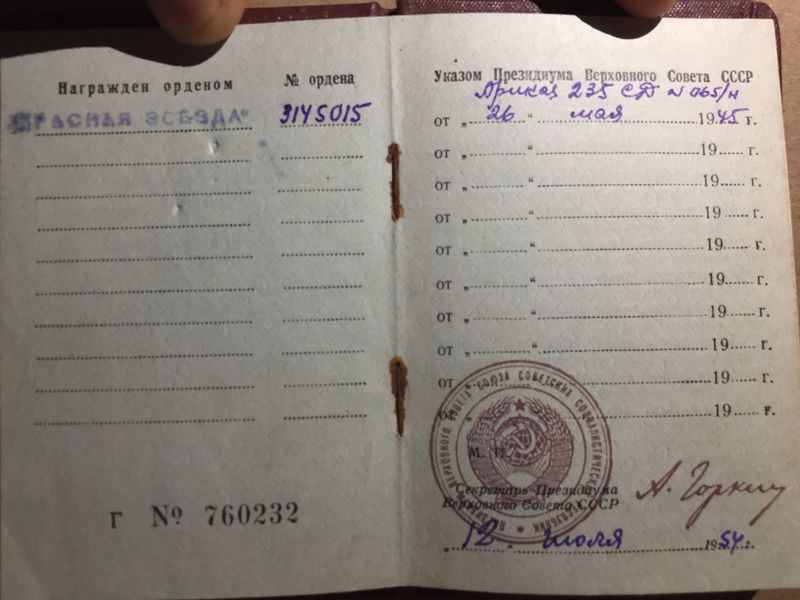 Награжден орденом
№ ордена
"КРАСНАЯ ЗВЕЗДА"
3145015
Г № 760232
Указом Президиума Верховного Совета СССР
Приказ 235 СД № 065/н
от „ 26 “ мая 1945 г.
от „ “ 19 г.
от „ “ 19 г.
от „ “ 19 г.
от „ “ 19 г.
от „ “ 19 г.
от „ “ 19 г.
от „ “ 19 г.
от 19 г.
от 19 г.
М. П.
Секретарь Президиума
Верховного Совета СССР
А. Горкин
„ 12 “ июля 1954 г.
ПРЕЗИДИУМ ВЕРХОВНОГО СОВЕТА СОЮЗА СОВЕТСКИХ СОЦИАЛИСТИЧЕСКИХ РЕСПУБЛИК